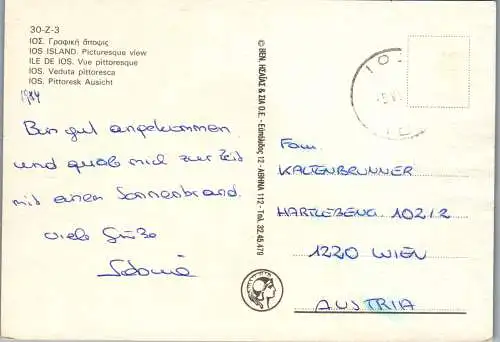 30-Z-3
ΙΟΣ. Γραφική ἄποψις
IOS ISLAND. Picturesque view
ILE DE IOS. Vue pittoresque
IOS. Veduta pittoresca
IOS. Pittoresk Ausicht
1984
Bin gut angekommen
und quäl mich zur Zeit
mit einem Sonnenbrand.
Viele Grüße
© ΒΕΝ. ΗΣΑΪΑΣ & ΣΙΑ Ο.Ε. - Εὐπόλιδος 12 - ΑΘΗΝΑ 112 - Τηλ. 32.45.479
Fam.
KALTENBRUNNER
HARTLEBENG. 10212
1220 WIEN
AUSTRIA